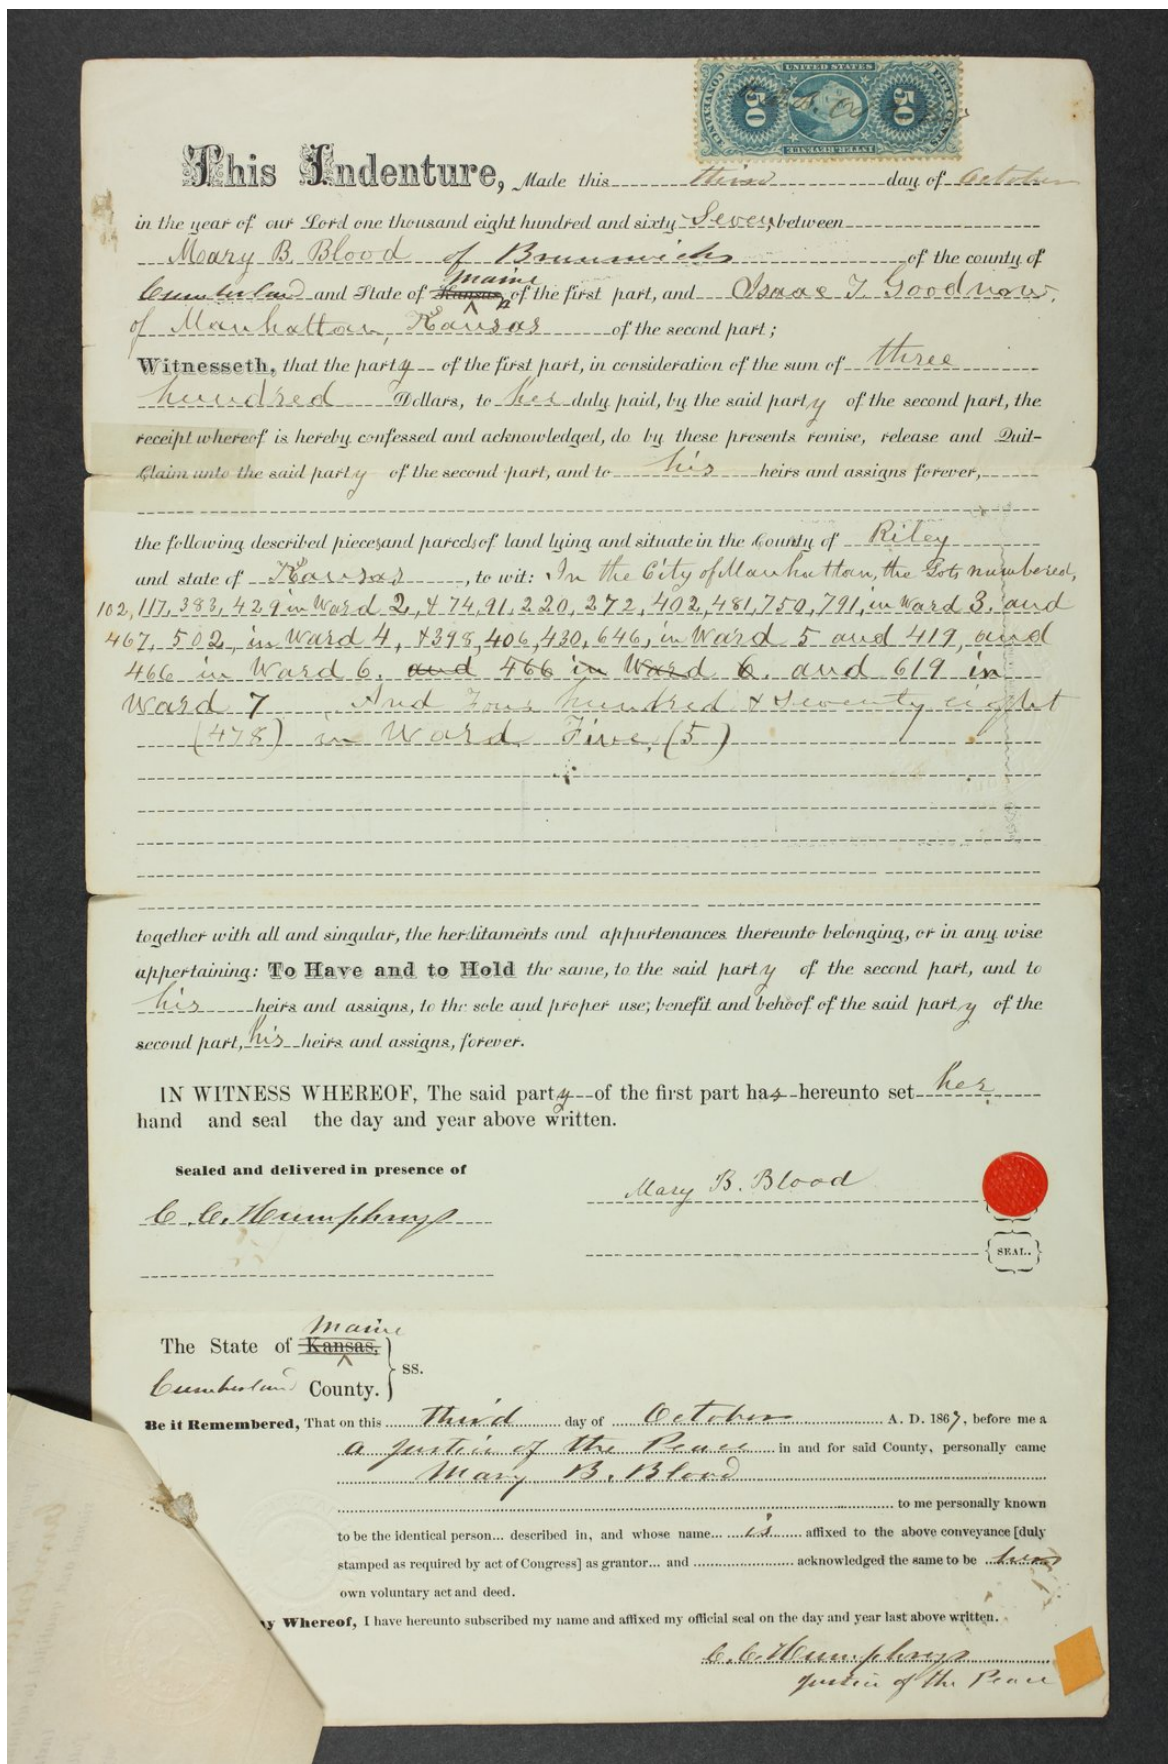 UNITED STATES
CONVEYANCE
50
50
FIFTY CENTS
INTER. REVENUE
This Indenture, Made this third day of October
in the year of our Lord one thousand eight hundred and sixty Seven, between
Mary B. Blood of Brunswick of the county of
Maine
Cumberland and State of Kansas, of the first part, and Isaac T. Goodnow,
of Manhattan, Kansas of the second part;
Witnesseth, that the party of the first part, in consideration of the sum of three
hundred Dollars, to her duly paid, by the said party of the second part, the
receipt whereof is hereby confessed and acknowledged, do by these presents remise, release and Quit-
Claim unto the said party of the second part, and to his heirs and assigns forever,
the following described pieces and parcels of land lying and situate in the County of Riley
and state of Kansas, to wit: In the City of Manhattan, the Lots numbered,
102, 117, 383, 429 in Ward 2, & 74, 91, 220, 272, 402, 481, 750, 791, in Ward 3. and
467, 502, in Ward 4, & 398, 406, 430, 646, in Ward 5 and 419, and
466 in Ward 6. and 466 in Ward 6. and 619 in
Ward 7 And Four hundred & Seventy eight
(478) in Ward Five, (5)
together with all and singular, the herditaments and appurtenances thereunto belonging, or in any wise
appertaining: To Have and to Hold the same, to the said party of the second part, and to
his heirs and assigns, to the sole and proper use; benefit and behoof of the said party of the
second part, his heirs and assigns, forever.
IN WITNESS WHEREOF, The said party of the first part has hereunto set her
hand and seal the day and year above written.
Sealed and delivered in presence of
Mary B. Blood
C. C. Humphreys
SEAL.
Maine
The State of Kansas,
ss.
Cumberland County.
Be it Remembered, That on this third day of October A. D. 1867, before me a
a Justice of the Peace in and for said County, personally came
Mary B. Blood
to me personally known
to be the identical person... described in, and whose name... is affixed to the above conveyance [duly
stamped as required by act of Congress] as grantor... and acknowledged the same to be her
own voluntary act and deed.
ny Whereof, I have hereunto subscribed my name and affixed my official seal on the day and year last above written.
C. C. Humphreys
Justice of the Peace